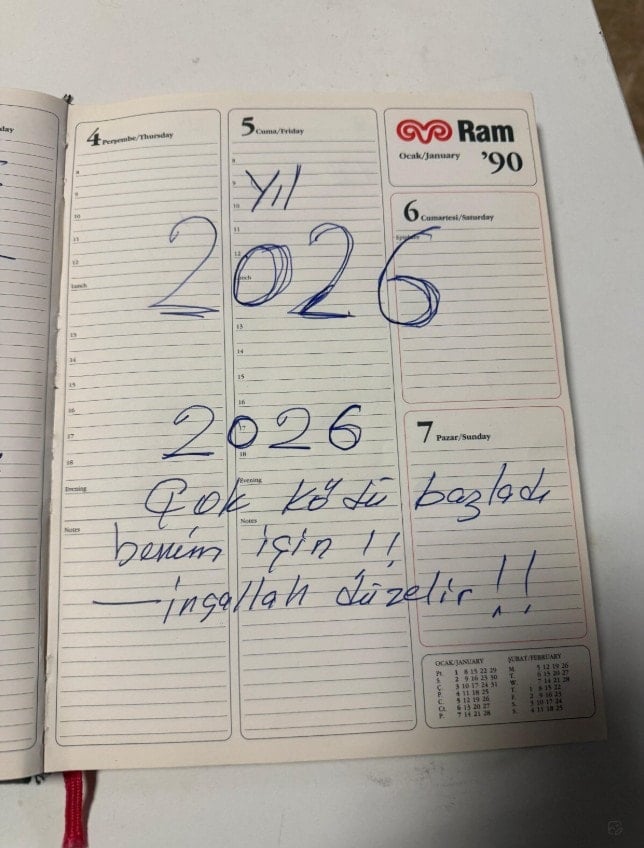 4 Perşembe/Thursday
8
9
10
11
12
Lunch
13
14
15
16
17
18
Evening
Notes
5 Cuma/Friday
8
9
10
11
12
13
14
15
16
17
18
Evening
Notes
Ram
Ocak/January '90
6 Cumartesi/Saturday
7 Pazar/Sunday
Yıl
2026
2026
Çok kötü başladı
benim için !!
— inşallah düzelir !!
OCAK/JANUARY
Pt. 1 8 15 22 29
S. 2 9 16 23 30
Ç. 3 10 17 24 31
P. 4 11 18 25
C. 5 12 19 26
Ct. 6 13 20 27
P. 7 14 21 28
ŞUBAT/FEBRUARY
M. 5 12 19 26
T. 6 13 20 27
W. 7 14 21 28
T. 1 8 15 22
F. 2 9 16 23
S. 3 10 17 24
S. 4 11 18 25